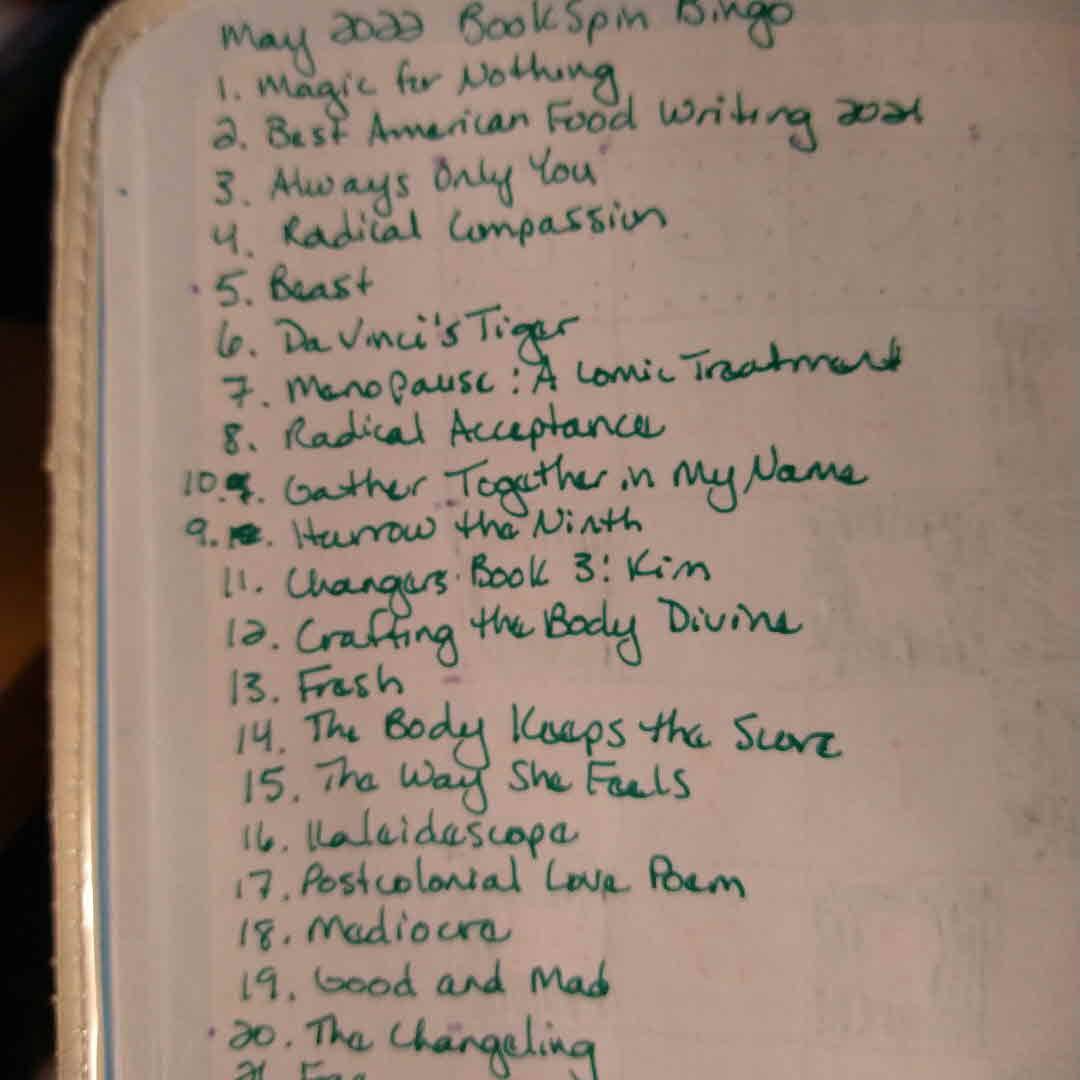 May 2022 BookSpin Bingo
1. Magic for Nothing
2. Best American Food Writing 2021
3. Always Only You
4. Radical Compassion
5. Beast
6. Da Vinci's Tiger
7. Menopause: A Comic Treatment
8. Radical Acceptance
10. Gather Together in My Name
9. Harrow the Ninth
11. Changers Book 3: Kim
12. Crafting the Body Divine
13. Fresh
14. The Body Keeps the Score
15. The Way She Feels
16. Kaleidoscope
17. Postcolonial Love Poem
18. Mediocre
19. Good and Mad
20. The Changeling
21.